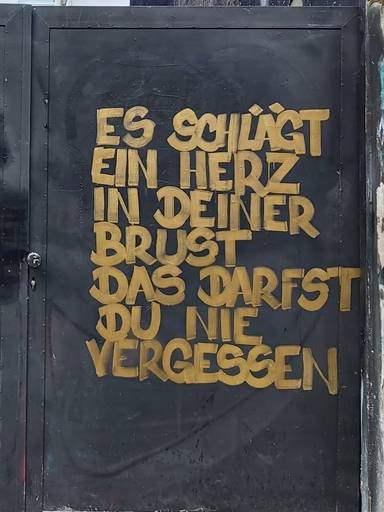 ES SCHLÄGT
EIN HERZ
IN DEINER
BRUST
DAS DARFST
DU NIE
VERGESSEN